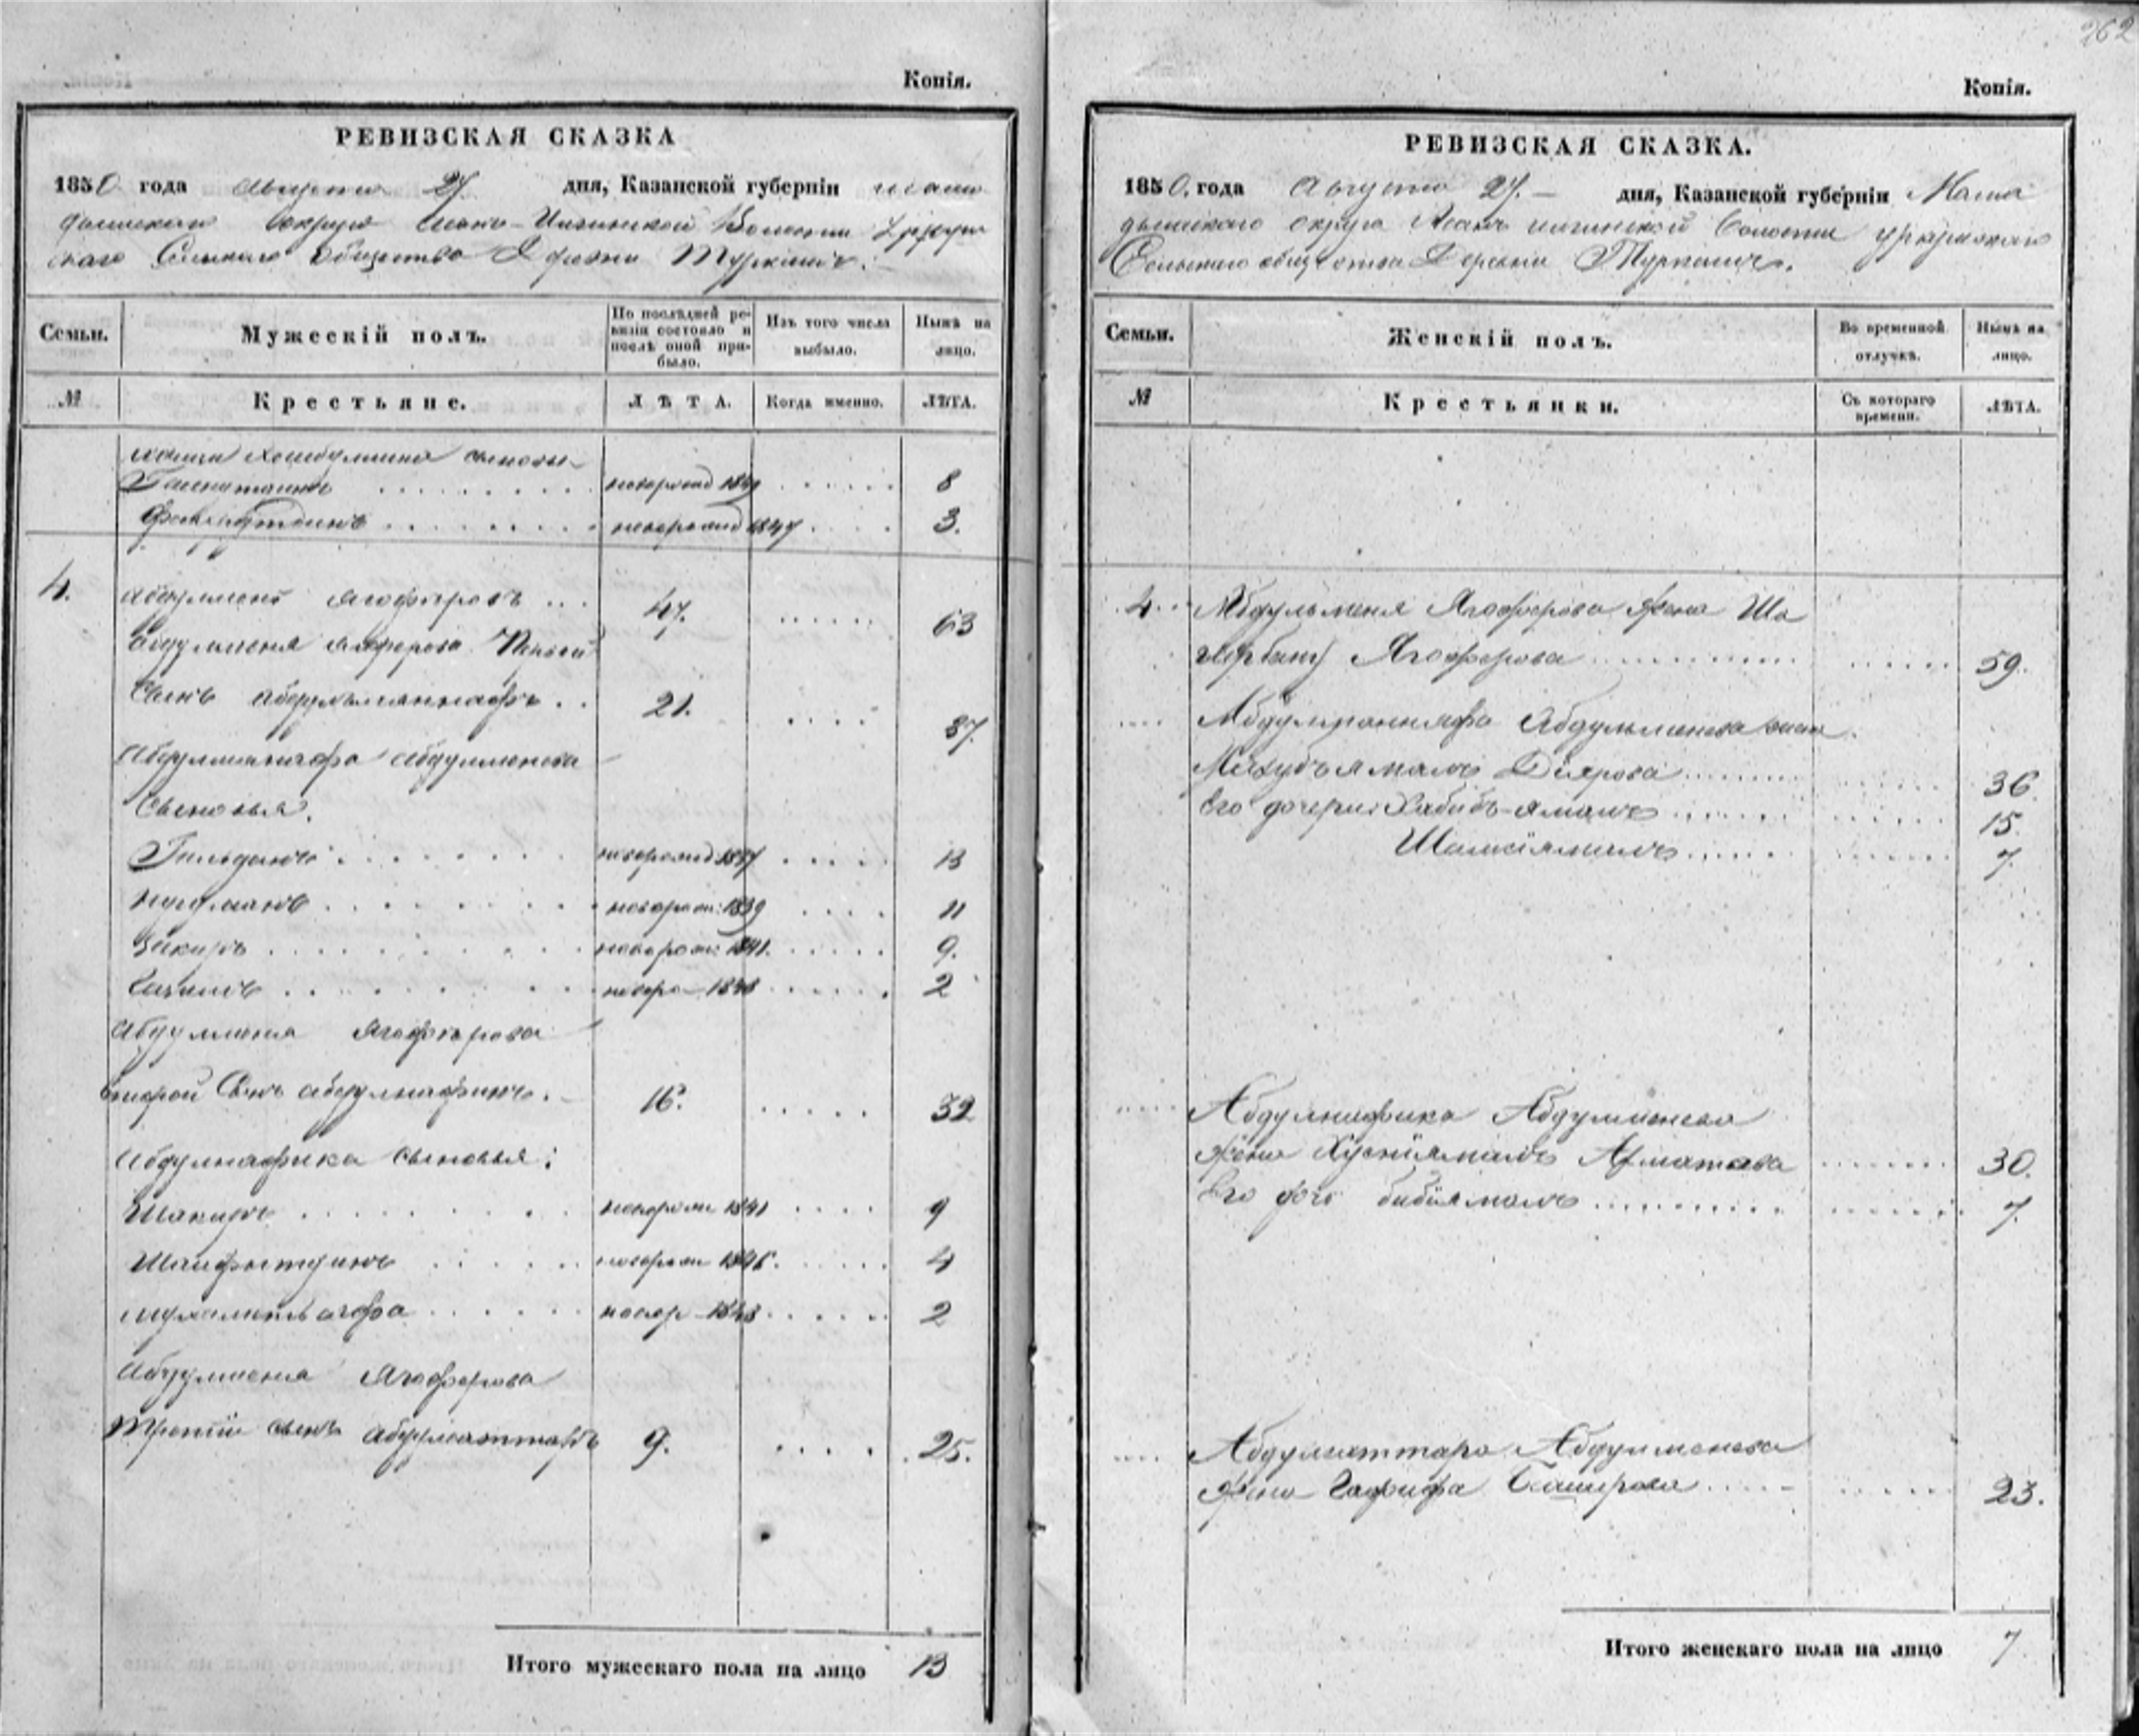 262
Копія.
РЕВИЗСКАЯ СКАЗКА
1850 года Августа 27 дня, Казанской губерніи мама
дышскаго округа Волости
скаго Сельскаго общества Деревни Туркашъ.
Семьи. Мужескій полъ. По послѣдней ревизіи состояло и послѣ оной прибыло. Изъ того числа выбыло. Нынѣ на лицо.
№ Крестьяне. ЛѢТА. Когда именно. ЛѢТА.
сыновья
новорожд 1842 8
новорожд 1847 3.
4. Абдулменъ Ягоферовъ 47. 63
Абдулменя Ягоферова Первый
Сынъ Абдулманнафъ 21. 37.
Абдулманнафа Абдулменева
Сыновья.
Гильданъ новорожд 1837 13
Нугманъ новорож: 1839 11
Закиръ новорож: 1841. 9.
новоро 1848 2
Абдулменя Ягоферова
второй Сынъ Абдулнафикъ. 16. 32
Абдулнафика сыновья:
Шакиръ новорож 1841 9
Шаифутдинъ новорож 1846. 4
новор 1848 2
Абдулменя Ягоферова
Третій сынъ Абдулсаттаръ 9. 25.
Итого мужескаго пола на лицо 13
Копія.
РЕВИЗСКАЯ СКАЗКА.
1850. года Августа 27. дня, Казанской губерніи Мама
дышскаго округа Волости
Сельскаго общества Деревни Туркашъ.
Семьи. Женскій полъ. Во временной отлучкѣ. Нынѣ на лицо.
№ Крестьянки. Съ котораго времени. ЛѢТА.
4. Абдульменя Ягоферова жена Ша
гербану Ягоферова 59.
Абдулманнафа Абдульменева жена
Махубъямалъ Діярова 36.
Его дочери: Хабибъ-ямалъ 15.
Шамсіямалъ 7.
Абдулнафика Абдулменева
жена Хуснiямалъ Ахматова 30.
Его дочь бибіямалъ 7.
Абдулсаттара Абдулменева
Жена Гафифа Баширова 23.
Итого женскаго пола на лицо 7